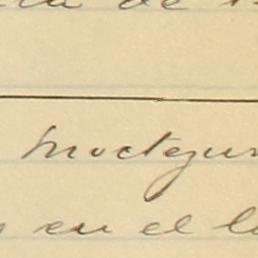 de
Moctezum
en el l